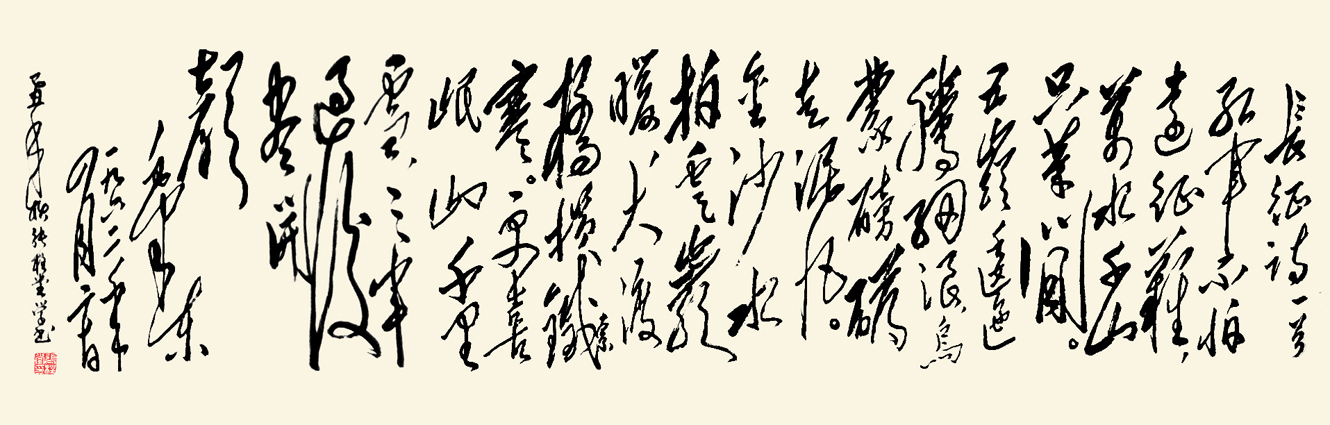 長征詩一首
紅軍不怕
遠征難，
萬水千山
只等閑。
五嶺逶迤
騰細浪烏
蒙磅礴
走泥丸。
金沙水
拍雲
暖大渡
橋橫鐵索
寒。更喜
岷山千里
雪，三軍
過後
盡開
顏
毛澤東
一九六二年
四月二十日